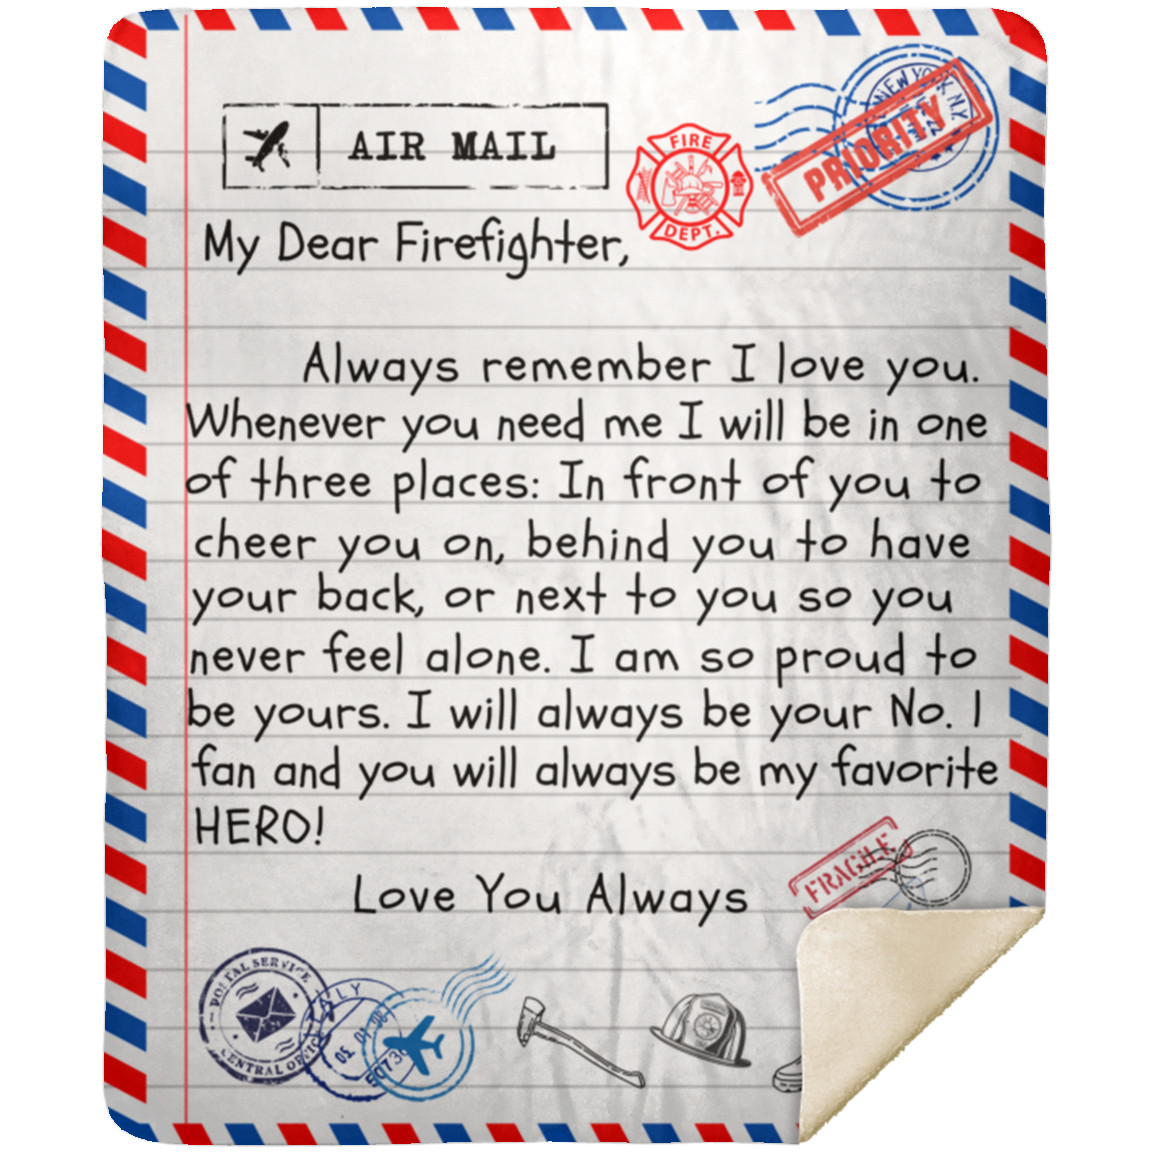 AIR MAIL
FIRE
DEPT.
NEW YORK, N.Y.
PRIORITY
My Dear Firefighter,
Always remember I love you.
Whenever you need me I will be in one
of three places: In front of you to
cheer you on, behind you to have
your back, or next to you so you
never feel alone. I am so proud to
be yours. I will always be your No. 1
fan and you will always be my favorite
HERO!
FRAGILE
Love You Always
POSTAL SERVICE
CENTRAL OFFICE
ITALY